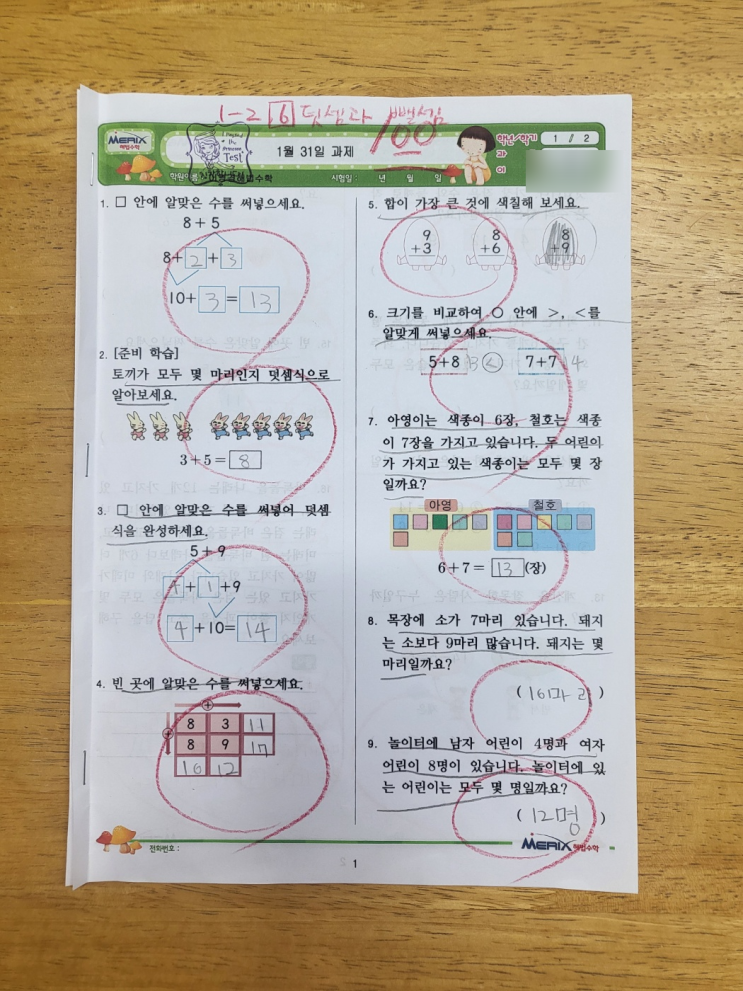 1-2 6 덧셈과 뺄셈
100
MERIX
해법수학
I Passed
the
Test
1월 31일 과제
학년/학기
1 // 2
과
시험일 : 년 월 일
1. □ 안에 알맞은 수를 써넣으세요.
8 + 5
8+ 2 + 3
10+ 3 = 13
2. [준비 학습]
토끼가 모두 몇 마리인지 덧셈식으로
알아보세요.
3+5= 8
3. □ 안에 알맞은 수를 써넣어 덧셈
식을 완성하세요.
5 + 9
4 + 1 +9
4 +10= 14
4. 빈 곳에 알맞은 수를 써넣으세요.
+
8 3 11
+
8 9 17
16 12
5. 합이 가장 큰 것에 색칠해 보세요.
9 8 8
+3 +6 +9
6. 크기를 비교하여 ○ 안에 >, <를
알맞게 써넣으세요.
5+8 13 < 7+7 14
7. 아영이는 색종이 6장, 철호는 색종
이 7장을 가지고 있습니다. 두 어린이
가 가지고 있는 색종이는 모두 몇 장
일까요?
아영 철호
6+7= 13 (장)
8. 목장에 소가 7마리 있습니다. 돼지
는 소보다 9마리 많습니다. 돼지는 몇
마리일까요?
( 16마리 )
9. 놀이터에 남자 어린이 4명과 여자
어린이 8명이 있습니다. 놀이터에 있
는 어린이는 모두 몇 명일까요?
( 12명 )
전화번호 :
MERIX 해법수학
1